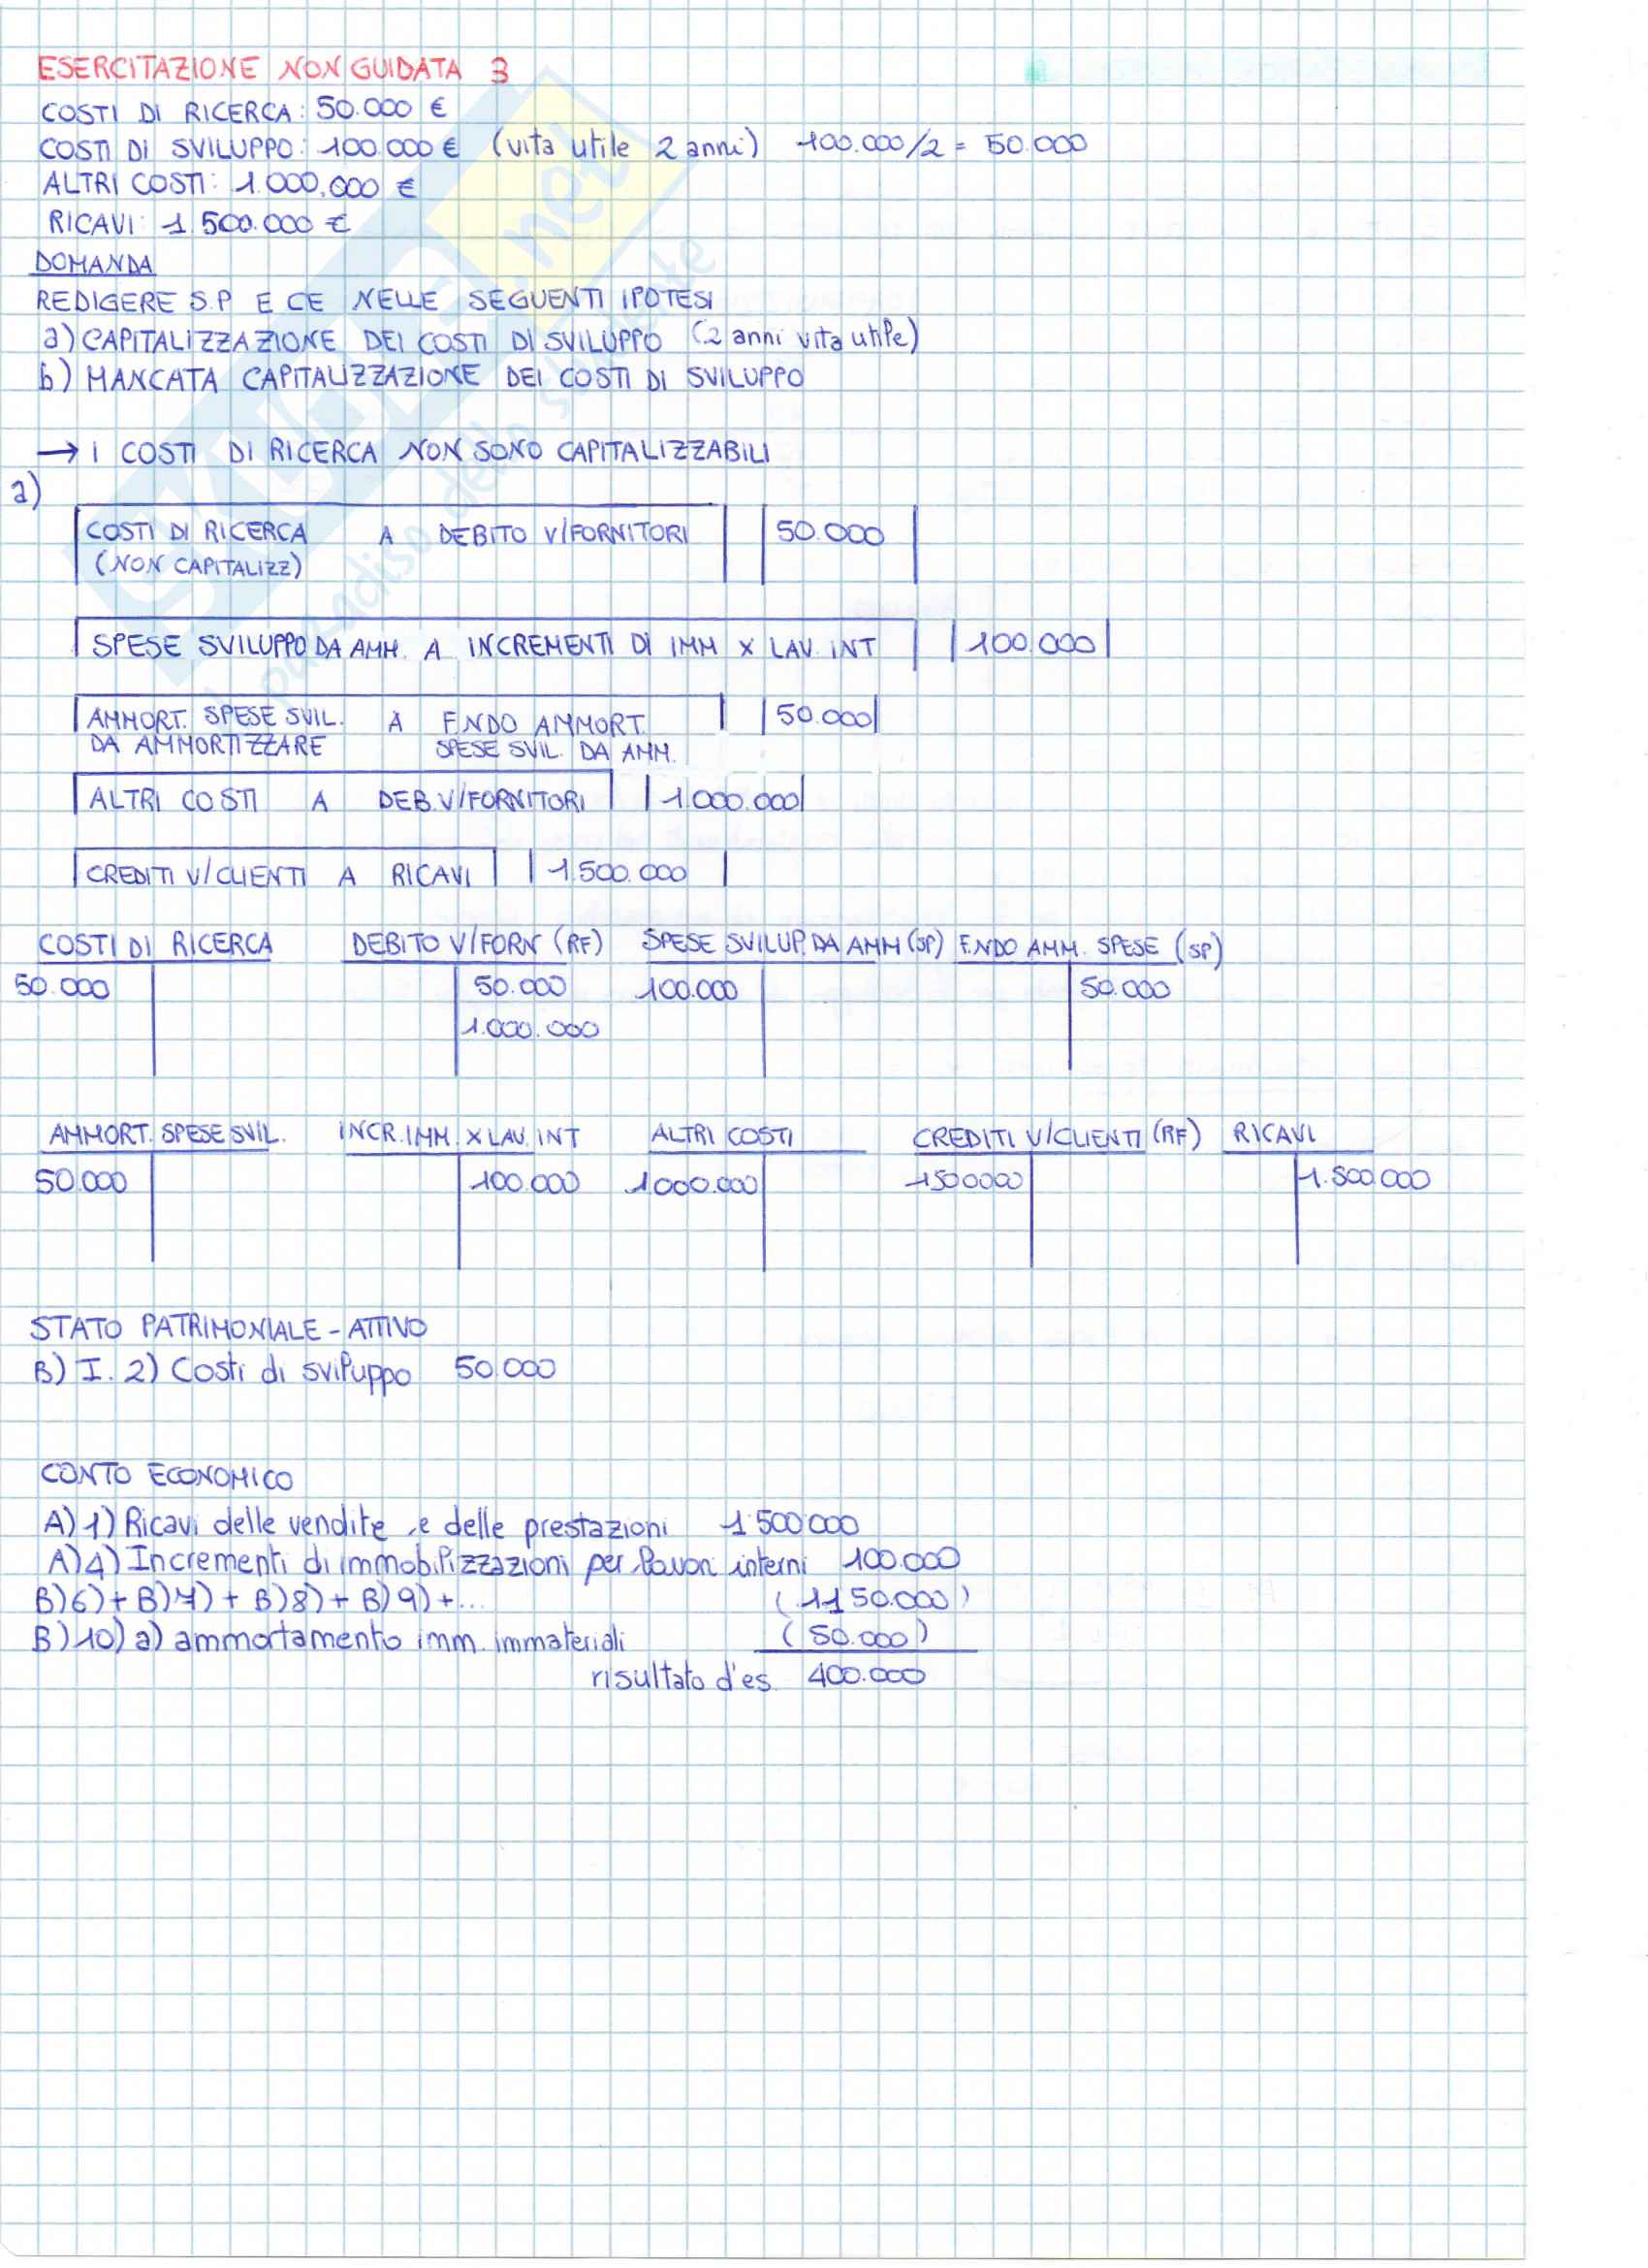 ESERCITAZIONE NON GUIDATA 3
COSTI DI RICERCA: 50.000 €
COSTI DI SVILUPPO: 100.000 € (vita utile 2 anni) 100.000/2 = 50.000
ALTRI COSTI: 1.000.000 €
RICAVI: 1.500.000 €
DOMANDA
REDIGERE S.P E CE NELLE SEGUENTI IPOTESI
a) CAPITALIZZAZIONE DEI COSTI DI SVILUPPO (2 anni vita utile)
b) MANCATA CAPITALIZZAZIONE DEI COSTI DI SVILUPPO
→ I COSTI DI RICERCA NON SONO CAPITALIZZABILI
a)
COSTI DI RICERCA A DEBITO V/FORNITORI 50.000
(NON CAPITALIZZ)
SPESE SVILUPPO DA AMM. A INCREMENTI DI IMM X LAV. INT 100.000
AMMORT. SPESE SVIL. A F.NDO AMMORT. 50.000
DA AMMORTIZZARE SPESE SVIL. DA AMM.
ALTRI COSTI A DEB.V/FORNITORI 1.000.000
CREDITI V/CLIENTI A RICAVI 1.500.000
COSTI DI RICERCA DEBITO V/FORN (RF) SPESE SVILUP. DA AMM (SP) F.NDO AMM. SPESE (SP)
50.000 50.000 100.000 50.000
1.000.000
AMMORT. SPESE SVIL. INCR. IMM. X LAV. INT ALTRI COSTI CREDITI V/CLIENTI (RF) RICAVI
50.000 100.000 1000.000 1500000 1.500.000
STATO PATRIMONIALE - ATTIVO
B) I. 2) Costi di sviluppo 50.000
CONTO ECONOMICO
A) 1) Ricavi delle vendite e delle prestazioni 1.500.000
A) 4) Incrementi di immobilizzazioni per lavori interni 100.000
B) 6) + B) 7) + B) 8) + B) 9) + ... (1150.000)
B) 10) a) ammortamento imm. immateriali (50.000)
risultato d'es. 400.000
SKUOLA.net
il paradiso dello studente